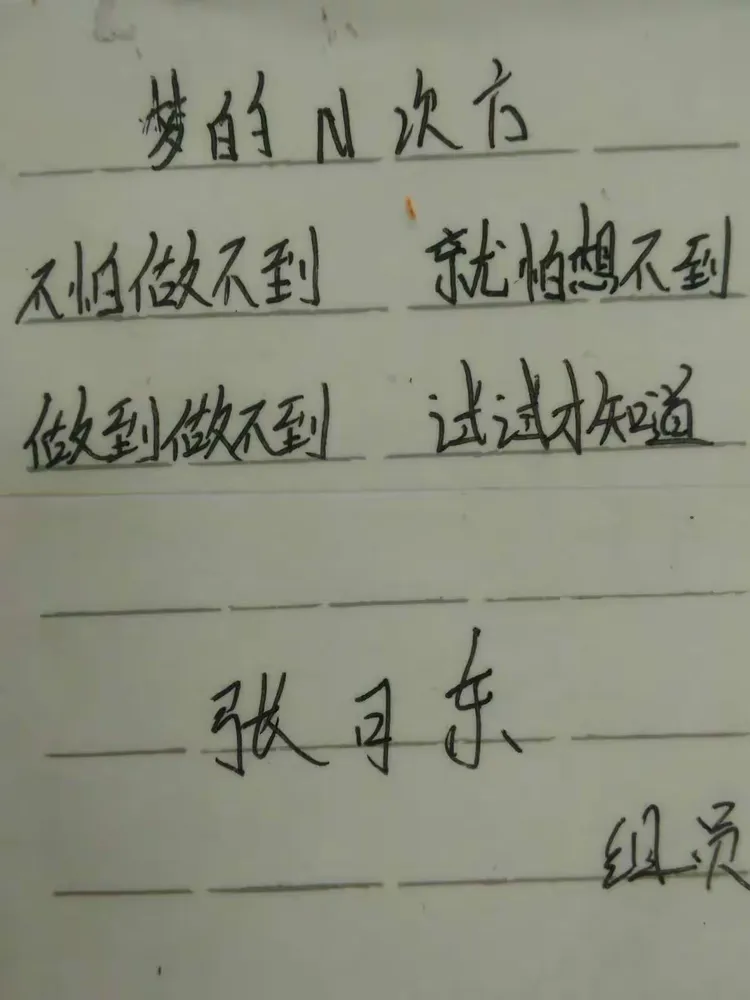 梦的N次方
不怕做不到 就怕想不到
做到做不到 试试才知道
张日东
组员